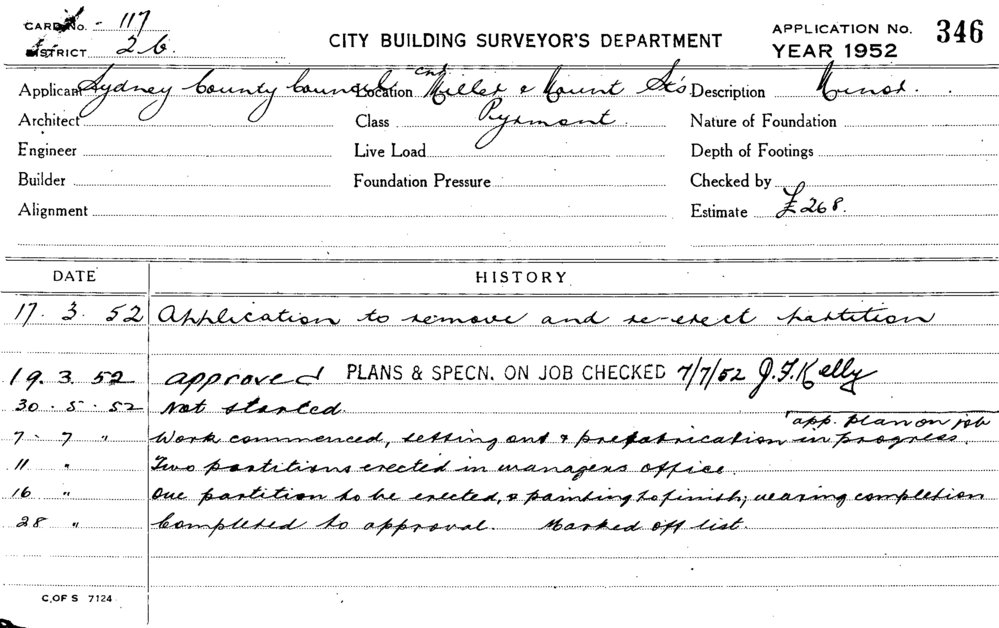 CARD No. - 117
DISTRICT 2b.
CITY BUILDING SURVEYOR'S DEPARTMENT
APPLICATION No. 346
YEAR 1952
Applicant Sydney County Council Location Cnr Miller & Mount Sts Description Minor.
Architect Class Pyrmont. Nature of Foundation
Engineer Live Load Depth of Footings
Builder Foundation Pressure Checked by
Alignment Estimate £268.
DATE HISTORY
17. 3. 52 Application to remove and re-erect partition
19. 3. 52 approved PLANS & SPECN. ON JOB CHECKED 7/7/52 J.F. Kelly
30. 5. 52 Not started.
app. plan on job
7. 7 " Work commenced, setting out & prefabrication in progress.
11 " Two partitions erected in managers office.
16 " One partition to be erected, & painting to finish; nearing completion
28 " Completed to approval. Marked off list.
C. OF S 7124